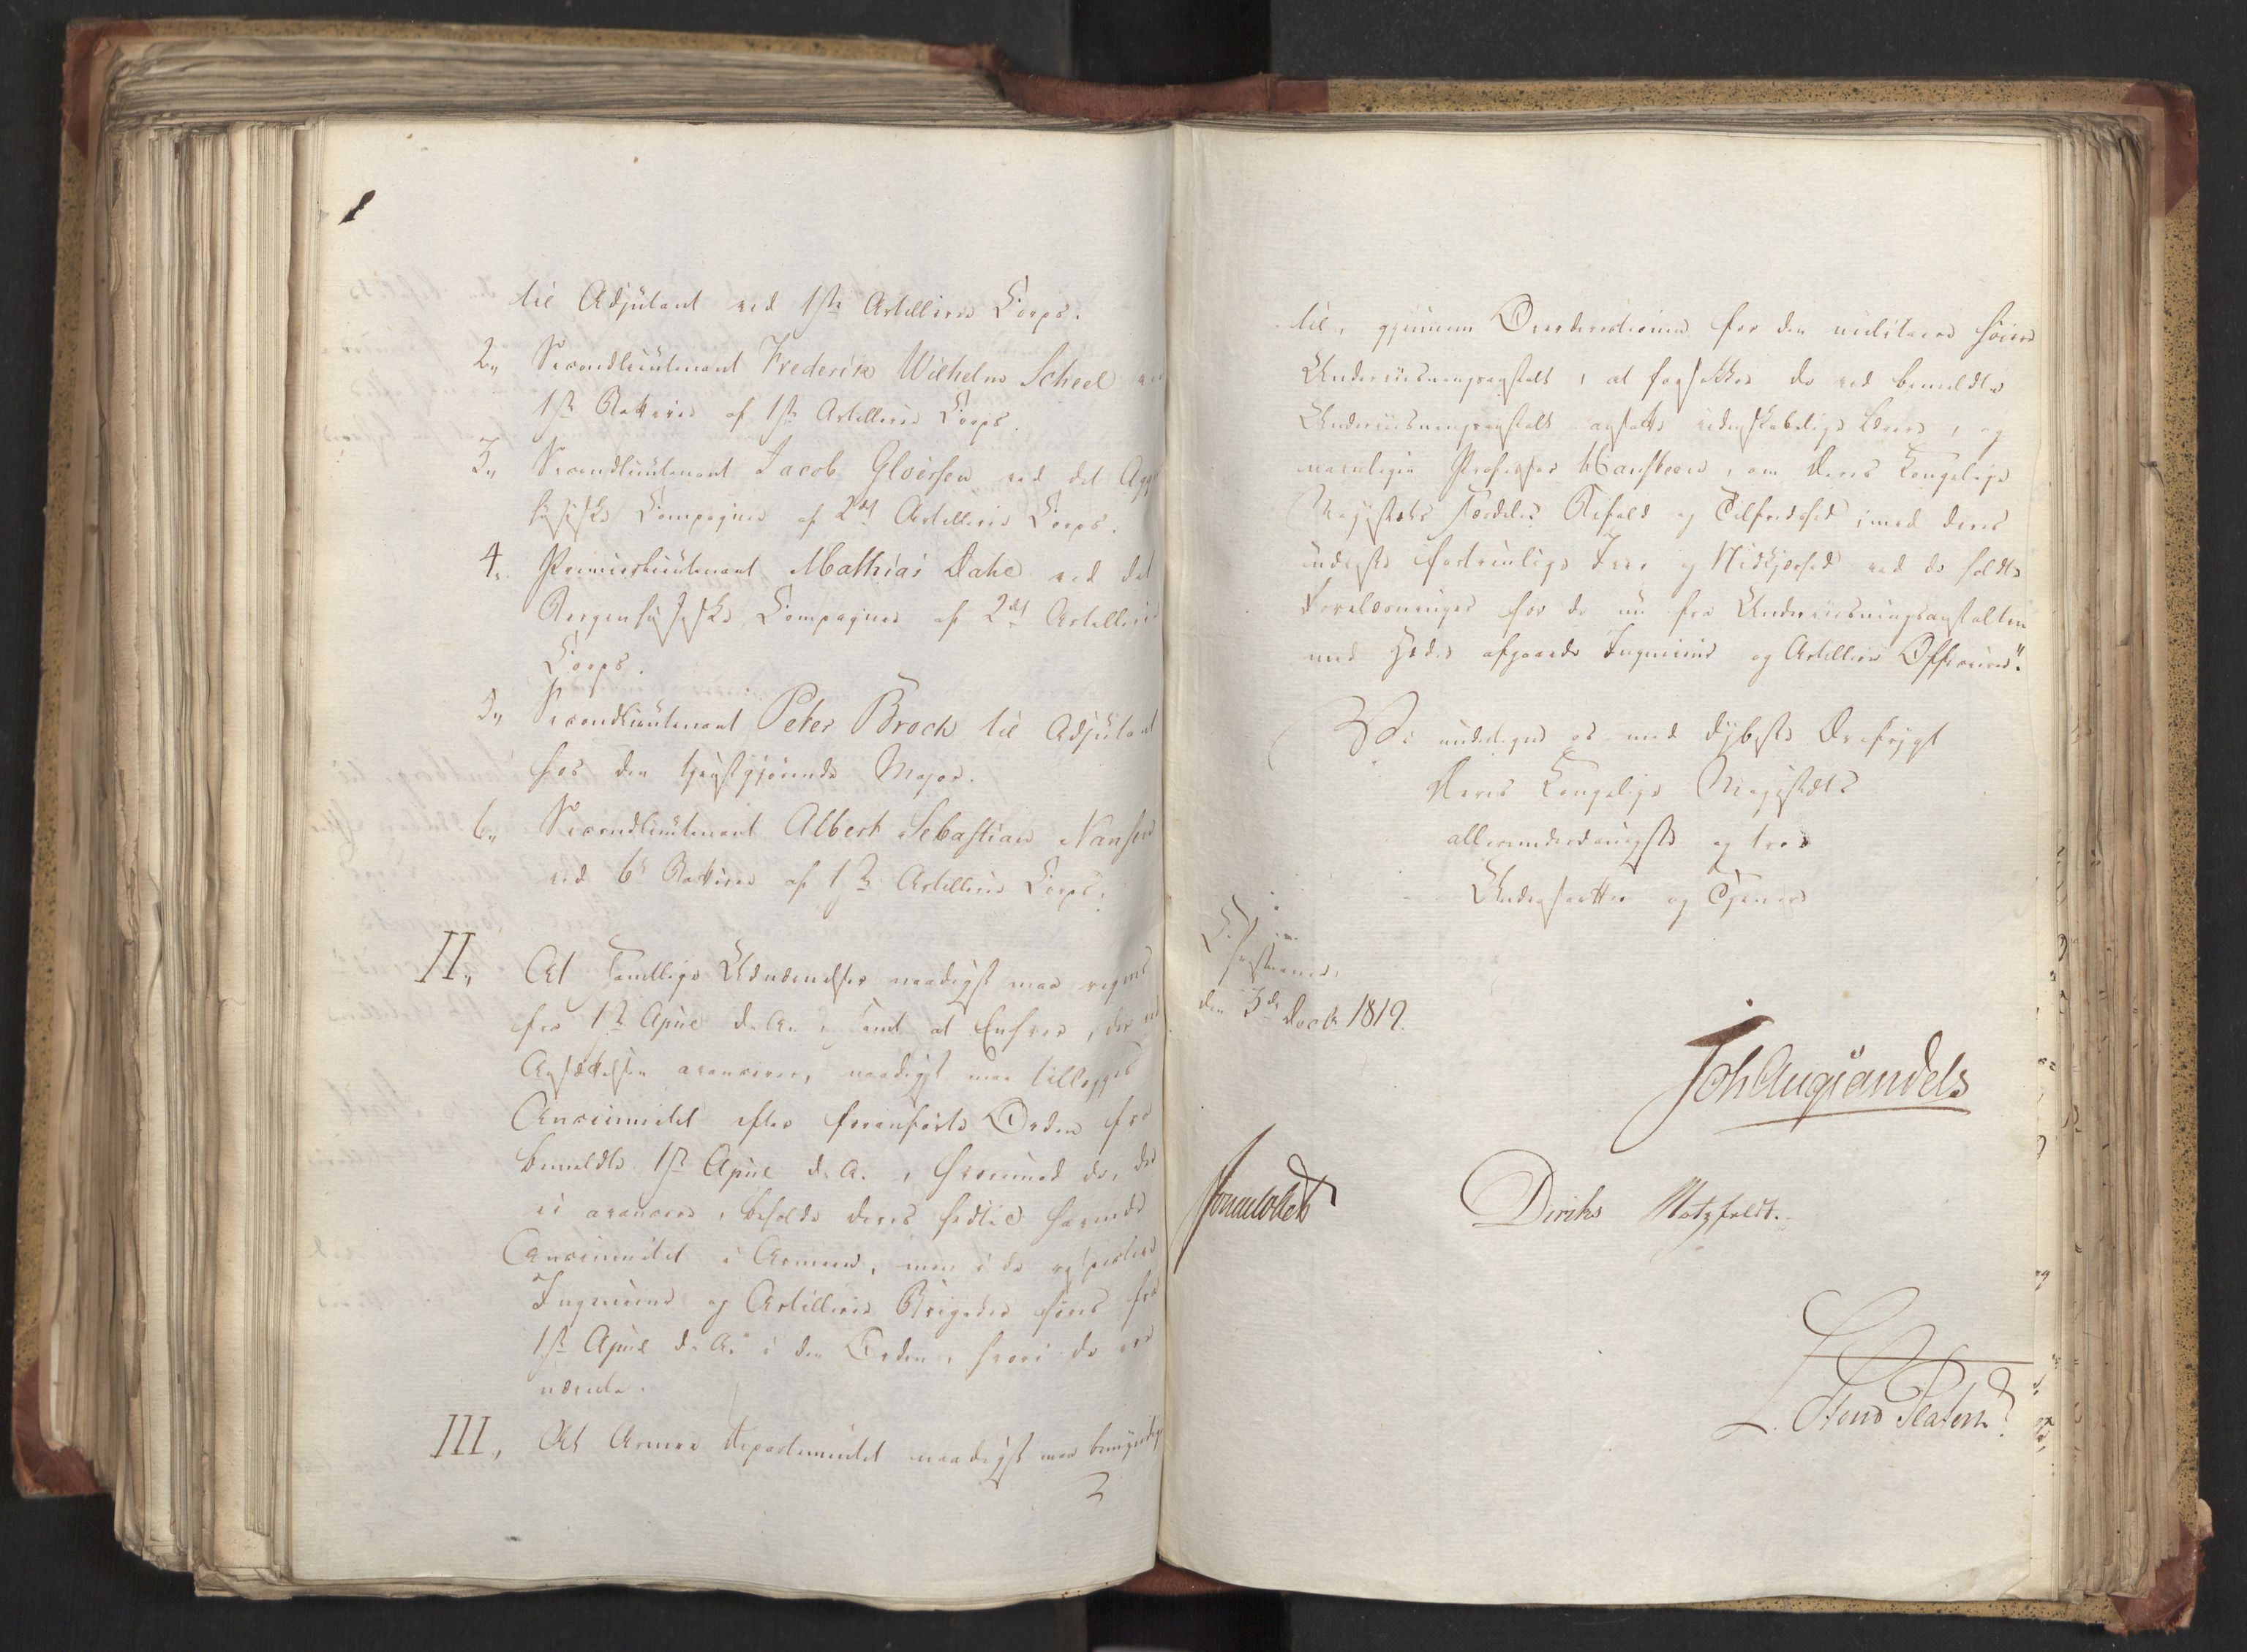 til Adjutant ved 1ste Artillerie Corps.
2, Secondlieutenant Frederik Wilhelm Scheel ved
1ste Batterie af 1ste Artillerie Corps.
3, Secondlieutenant Jacob Gløersen ved det Agger
husiske Compagnie af 2det Artillerie Corps.
4, Premierlieutenant Mathias Dahl ved det
Bergenhusiske Compagnie af 2det Artillerie
Corps.
5, Secondlieutenant Peter Broch til Adjutant
hos den tjenstgjørende Major.
6, Secondlieutenant Albert Sebastian Nansen
ved 6te Batterie af 1ste Artillerie Corps.
II, At samtlige Udnævnelser naadigst maa regnes
fra 1ste April d. A. samt at Enhver, der ved
Ansættelsen avancerer, naadigst maa tillægges
Anciennitet efter foranførte Orden fra
bemeldte 1ste April d. A., hvorimod de, der
ei avancere, beholde deres hidtil havende
Anciennitet i Armeen, men i de respective
Ingenieur og Artillerie Brigader
1ste April d. A. i den Orden, hvori de ere
nævnte.
III, At Armee Departementet naadigst maa bemyndiges
til, gjennem Overdirectionen for den militaire høiere
Underviisningsanstalt, at forsikkre de ved bemeldte
Underviisningsanstalt ansatte videnskabelige Lærere, og
navnligen Professor Hansteen, om Deres Kongelige
Majestæts særdeles Bifald og Tilfredshed med deres
udviiste fortrinlige Iver og Nidkjærhed ved de holdte
Forelæsninger for de nu fra Underviisningsanstalten
med Hæder afgaaede Ingenieur og Artillerie Officierer".
Vi undertegne os med dybeste Ærefrygt
Deres Kongelige Majestæts
allerunderdanigste og troe
Undersaatter og Tjenere
Christiania,
den 3de Decbr 1819.
Joh Aug Sandels
Sommerhielm
Diriks Motzfeldt.
L. Stoud Platou